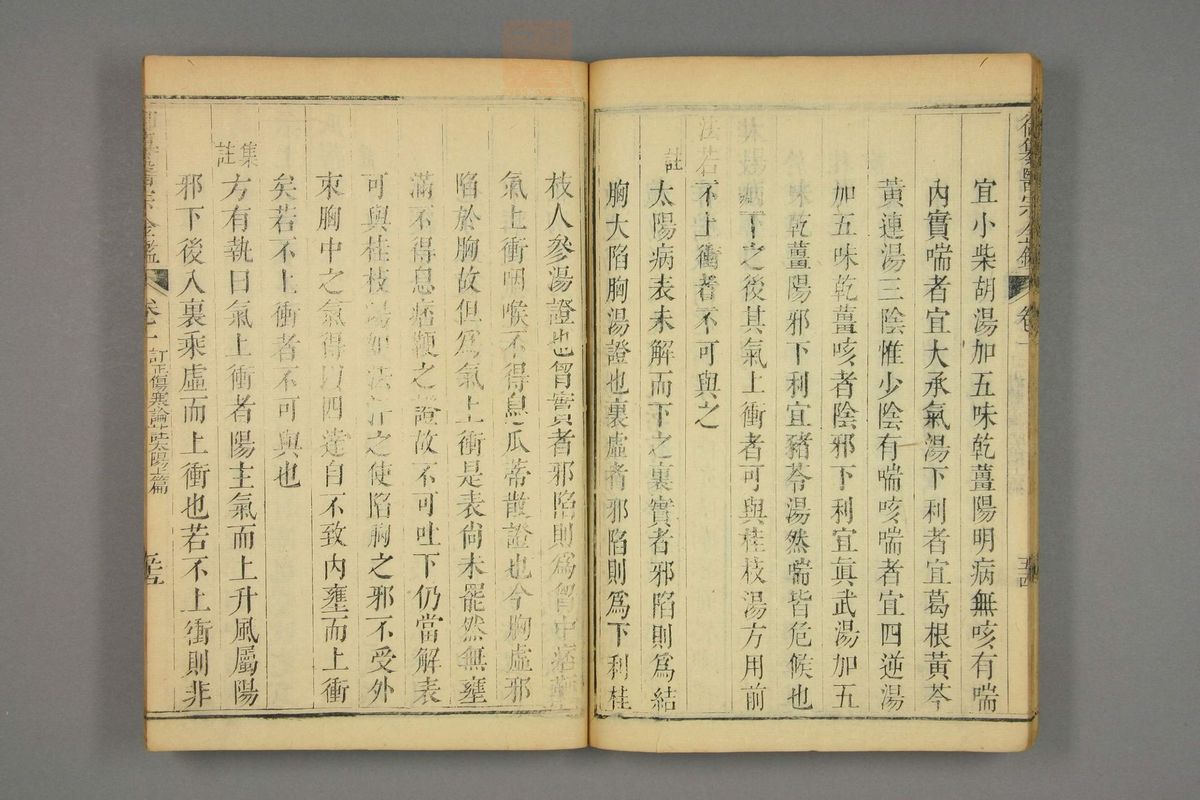 宜小柴胡湯加五味乾薑陽明病無咳有喘
內實喘者宜大承氣湯下利者宜葛根黃芩
黃連湯三陰惟少陰有喘咳喘者宜四逆湯
加五味乾薑咳者陰邪下利宜眞武湯加五
味乾薑陽邪下利宜豬苓湯然喘皆危候也
太陽病下之後其氣上衝者可與桂枝湯方用前
法若不上衝者不可與之
註
太陽病表未解而下之裏實者邪陷則爲結
胸大陷胸湯證也裏虛者邪陷則爲下利桂
枝人參湯證也胷實者邪陷則爲胷中痞
氣上衝咽喉不得息瓜蒂散證也今胸虛邪
陷於胸故但爲氣上衝是表尙未罷然無壅
滿不得息痞鞕之證故不可吐下仍當解表
可與桂枝湯如法汗之使陷胸之邪不受外
束胸中之氣得以四達自不致內壅而上衝
矣若不上衝者不可與也
集註
方有執曰氣上衝者陽主氣而上升風屬陽
邪下後入裏乘虛而上衝也若不上衝則非
御纂醫宗金鑑
卷一
訂正傷寒論註太陽上篇
五十五